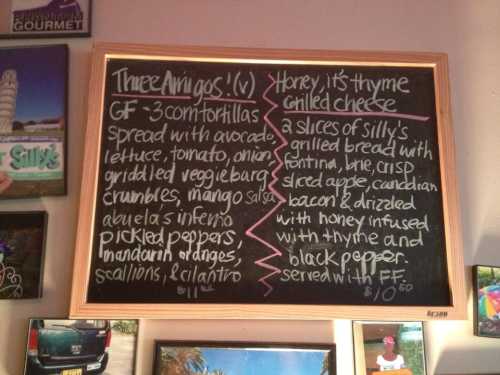 GOURMET
Silly's
Three Amigos! (v)
GF - 3 corn tortillas
spread with avocado,
lettuce, tomato, onion,
griddled veggie burg
crumbles, mango salsa
abuelas inferno
pickled peppers,
mandarin oranges,
scallions, & cilantro
Honey, it's thyme
grilled cheese
2 slices of silly's
grilled bread with
fontina, brie, crisp
sliced apple, canadian
bacon & drizzled
with honey infused
with thyme and
black pepper.
served with FF.
$10.50